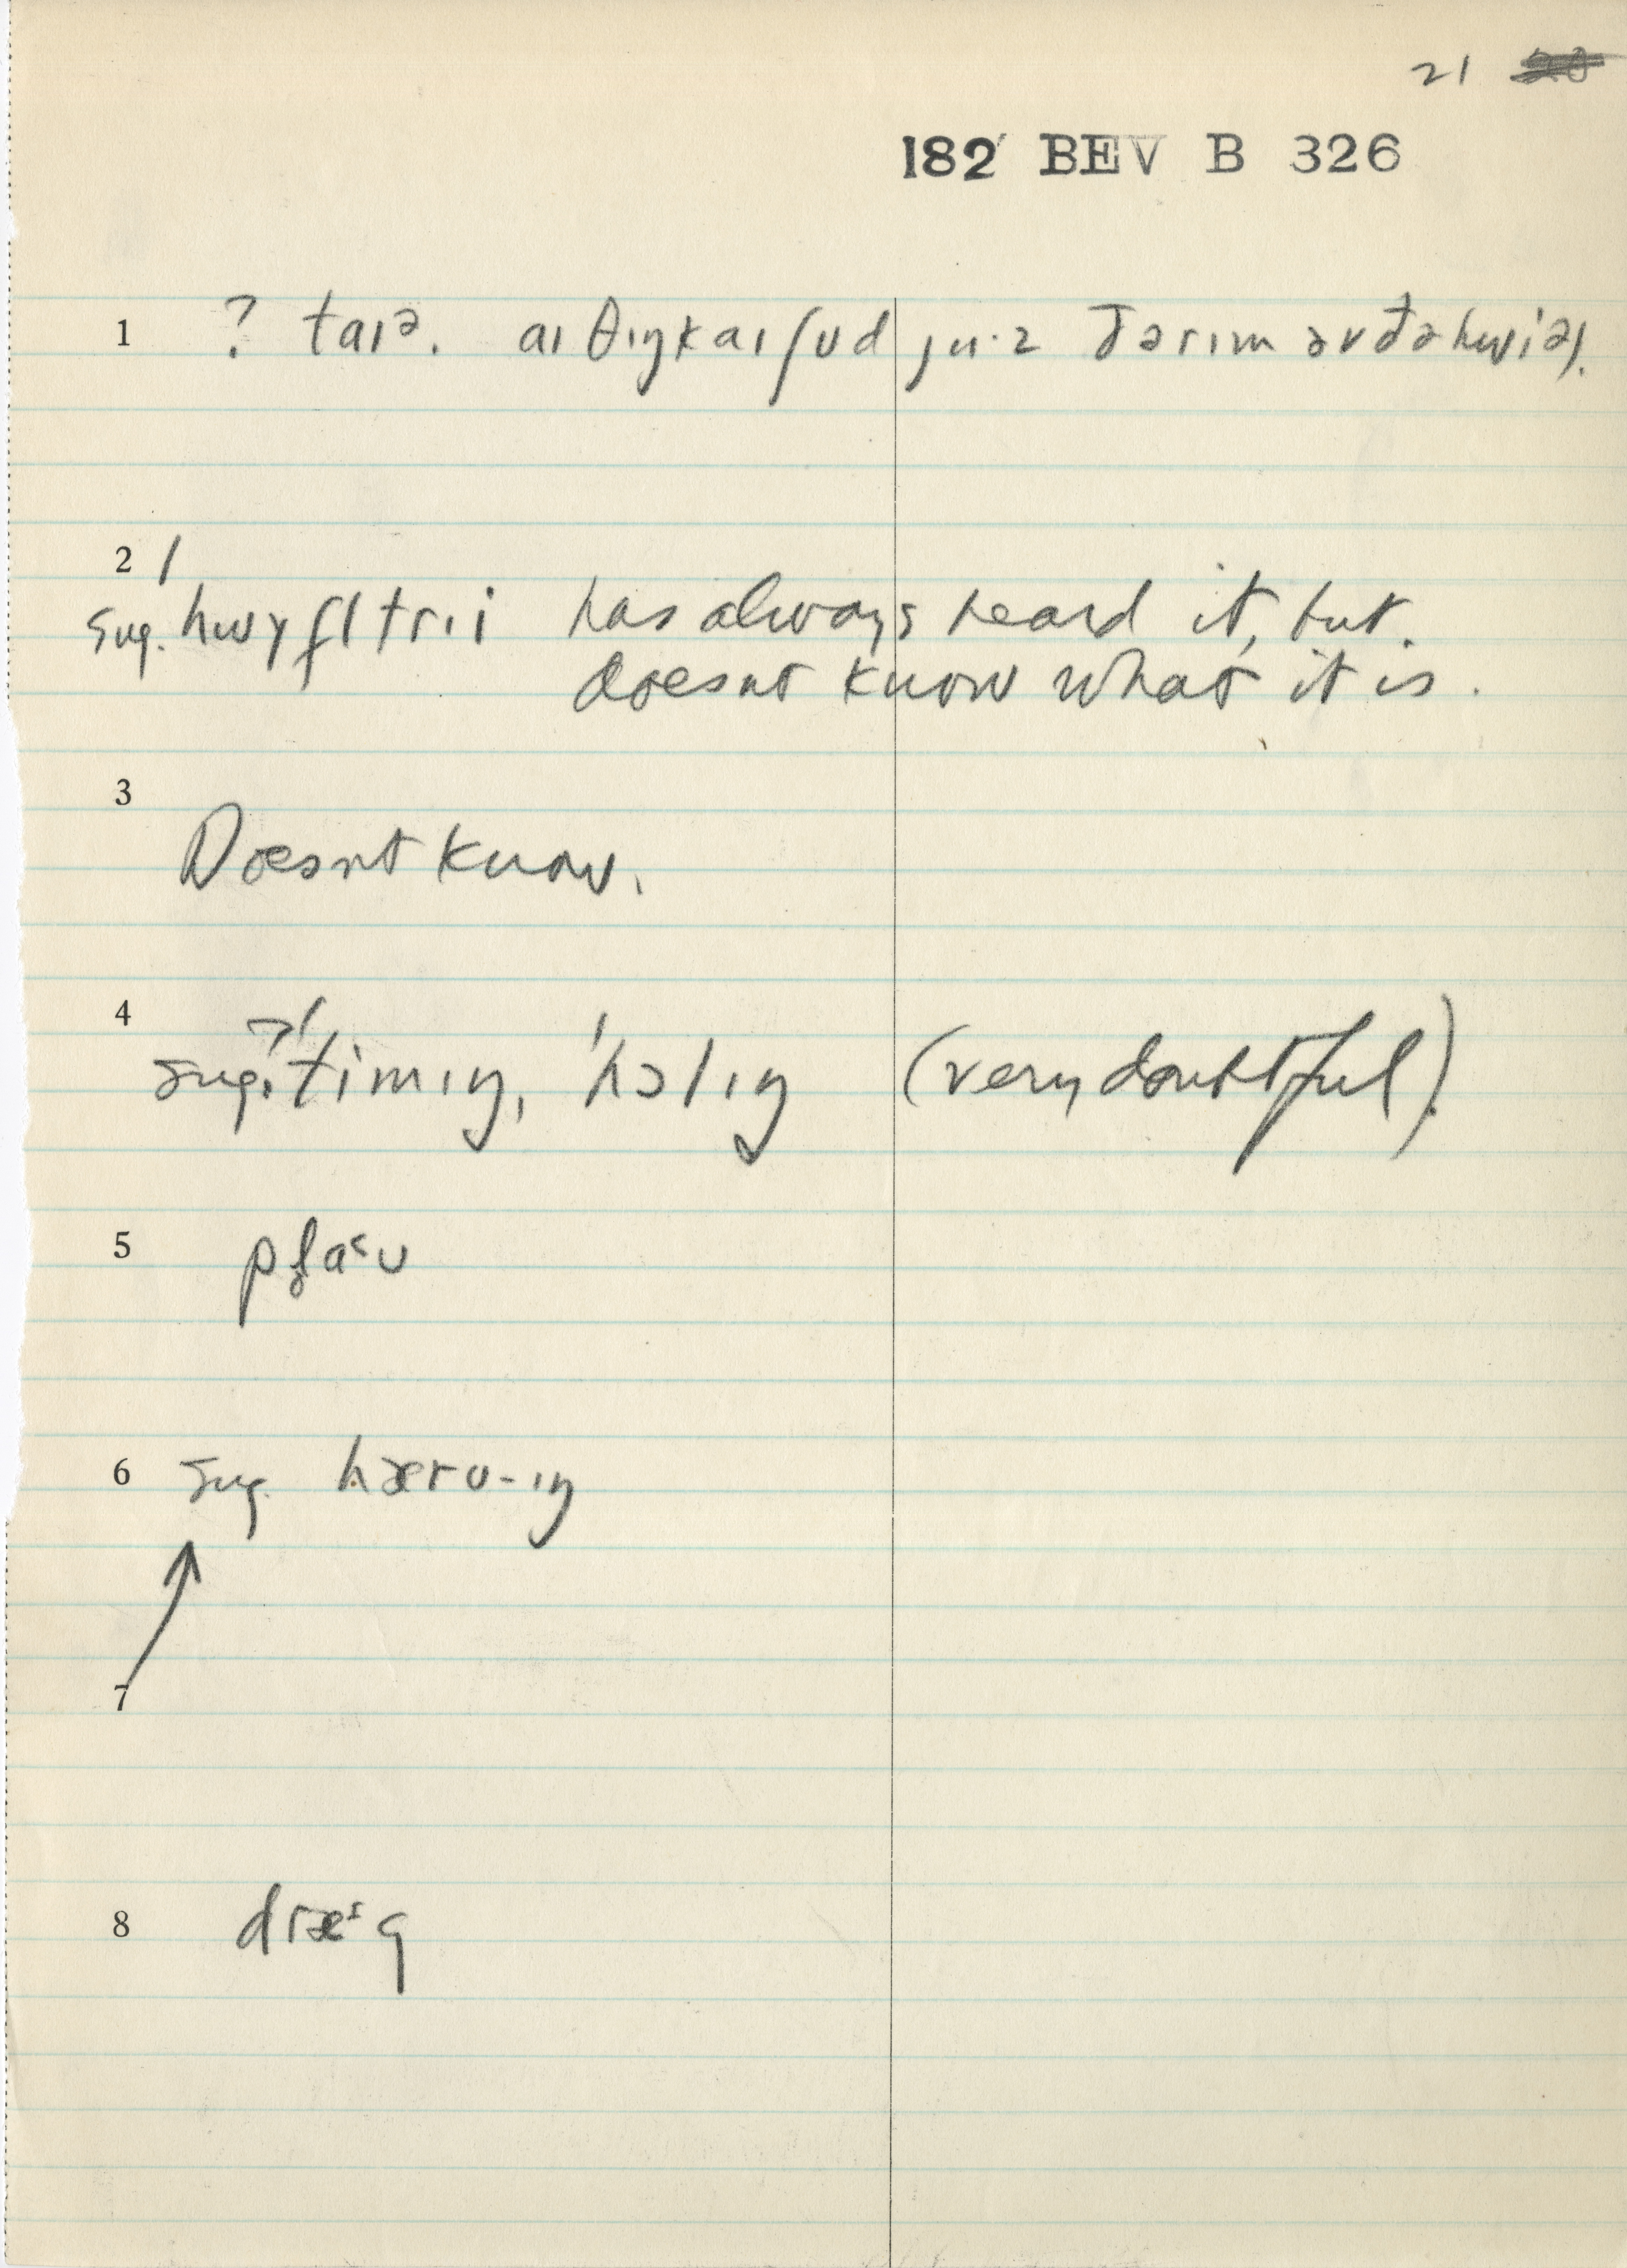 21
182 BEV B 326
1 ? taɪə. aɪ θɪŋk aɪ ʃʊd ju·z ðə rɪm əv ðə hwiəl.
2
sug. hwɪfltri has always heard it, but.
doesnt know what it is.
3
Doesnt know.
4
sug. 'timɪŋ, 'hɔlɪŋ (very doubtful).
5 plaʊ
6 sug. hærʊ-ɪŋ
7
8 dræg